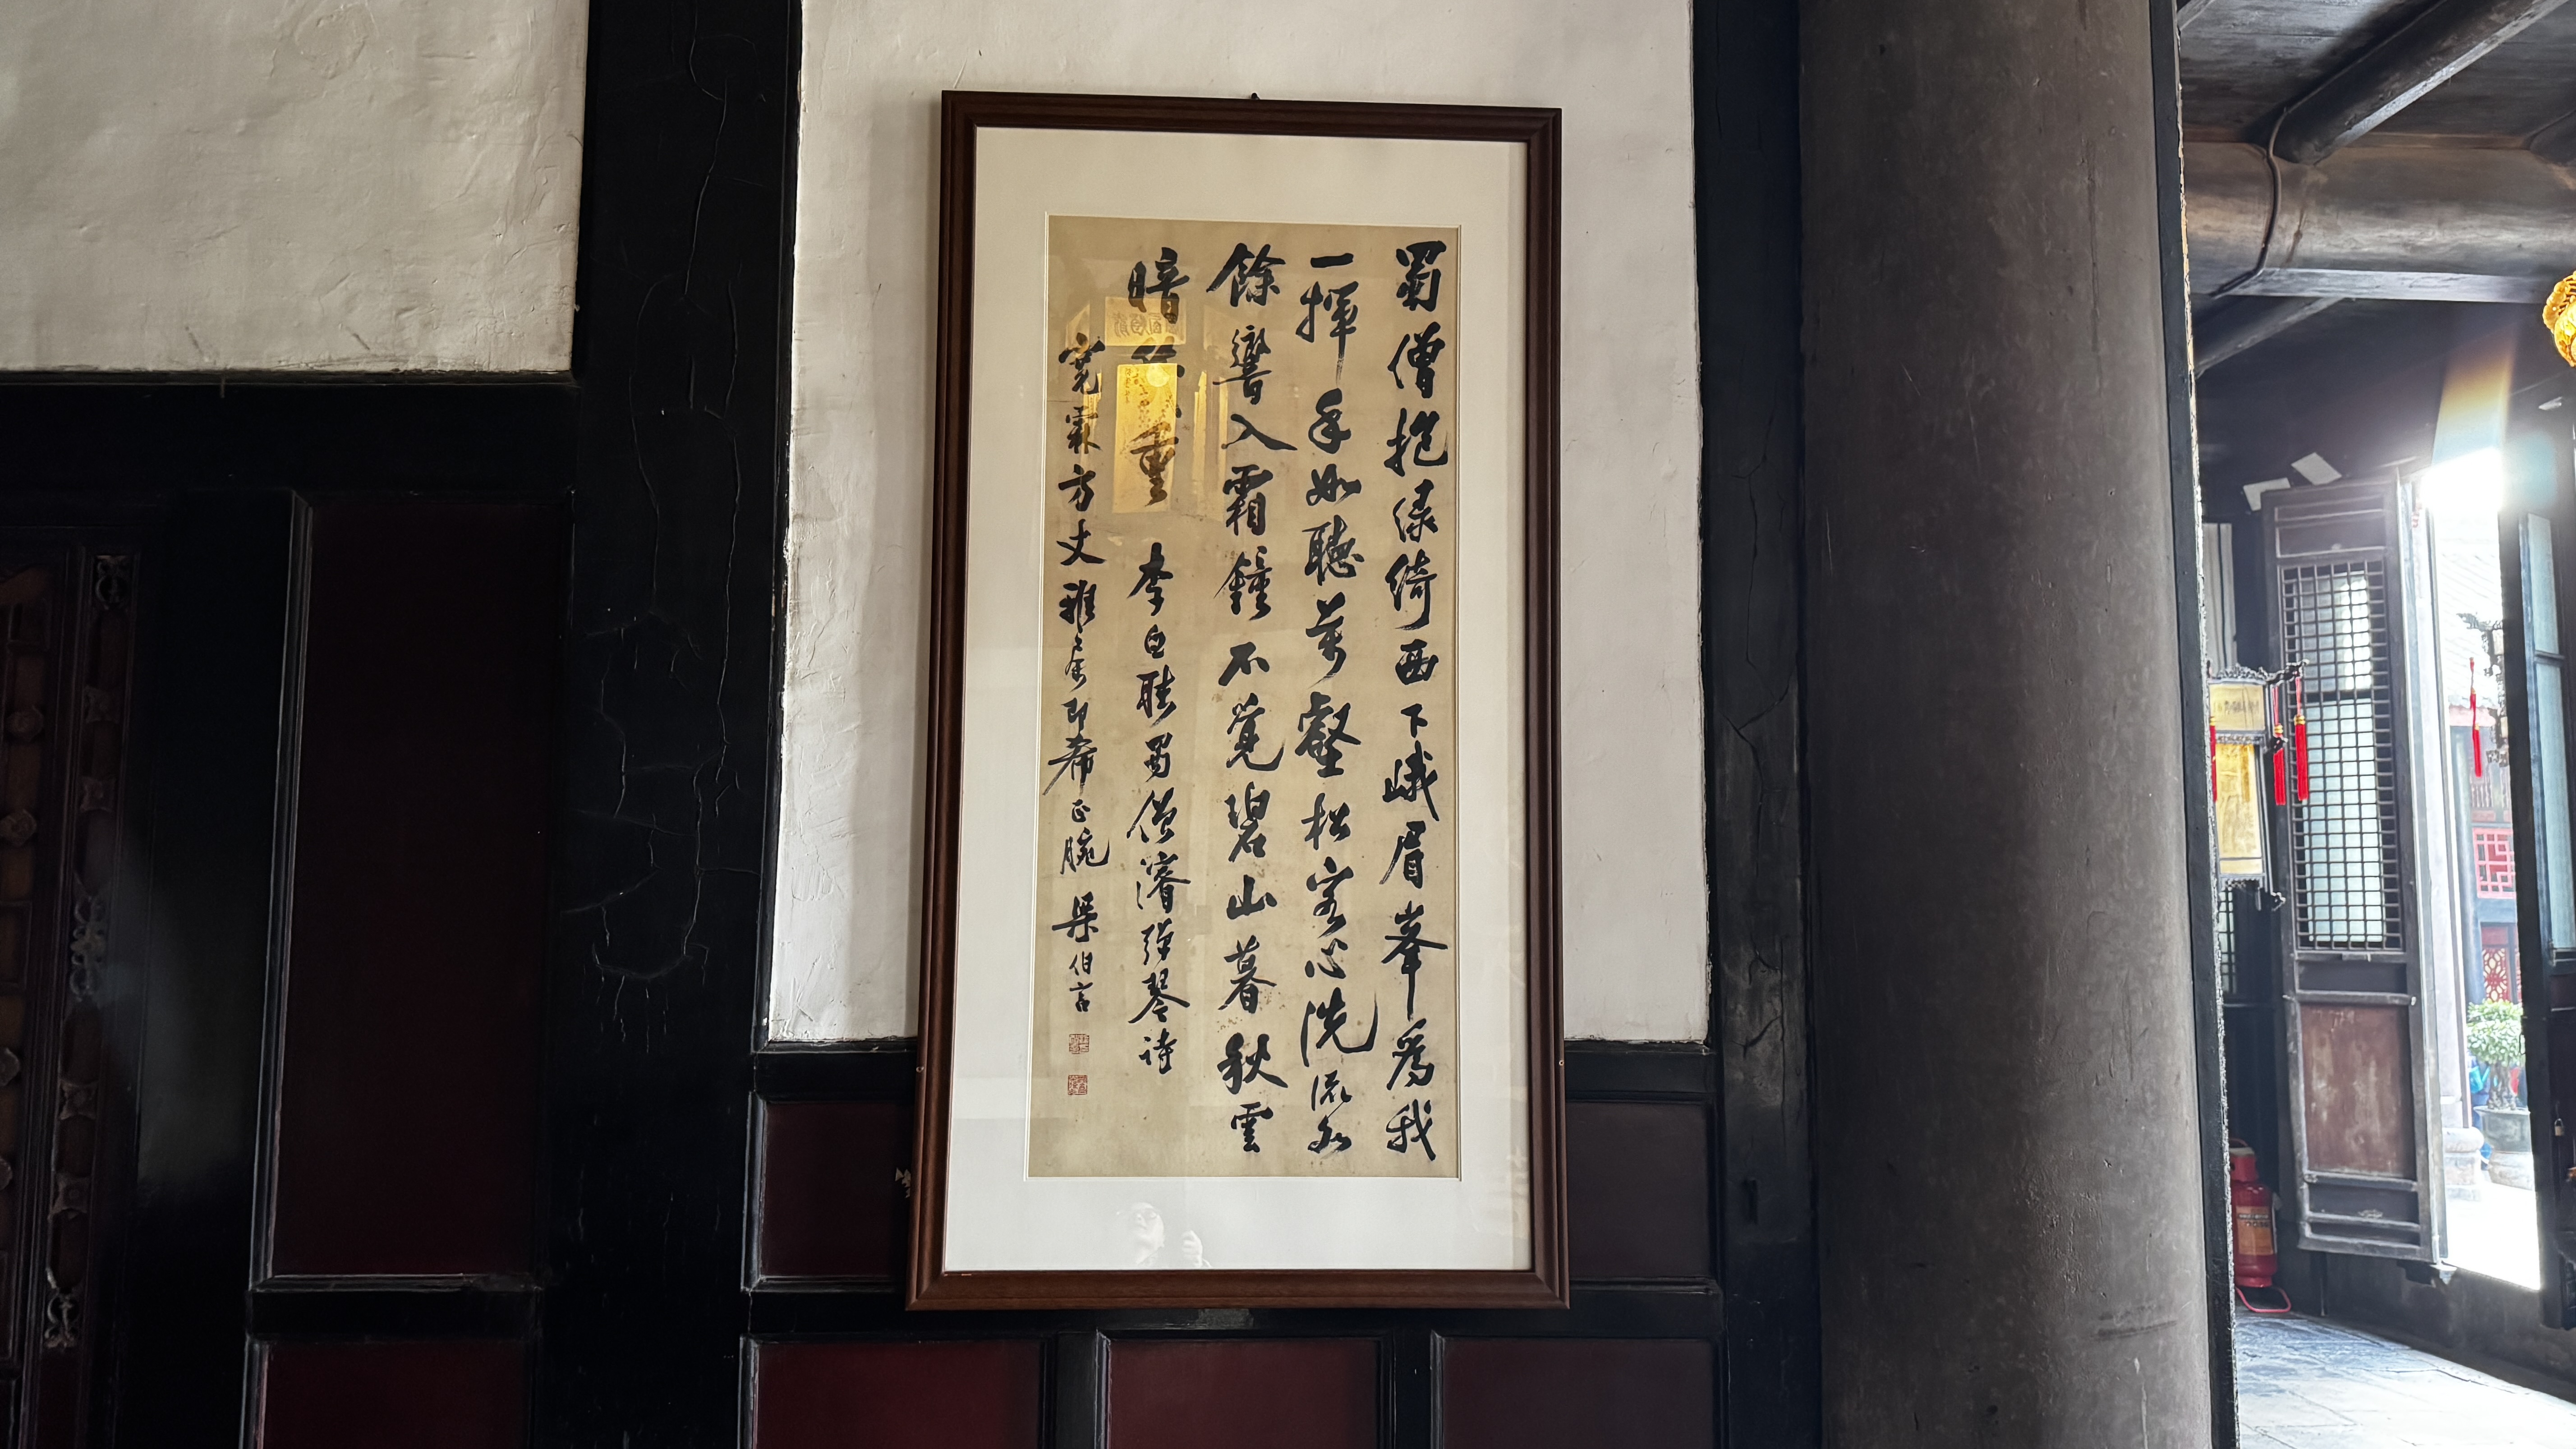 蜀僧抱绿绮西下峨眉峯爲我
一揮手如聽萬壑松客心洗流水
餘響入霜鐘不覺碧山暮秋雲
暗 重 李白聴蜀僧濬弹琴诗
寛霖方丈雅属即希正腕 梁伯言